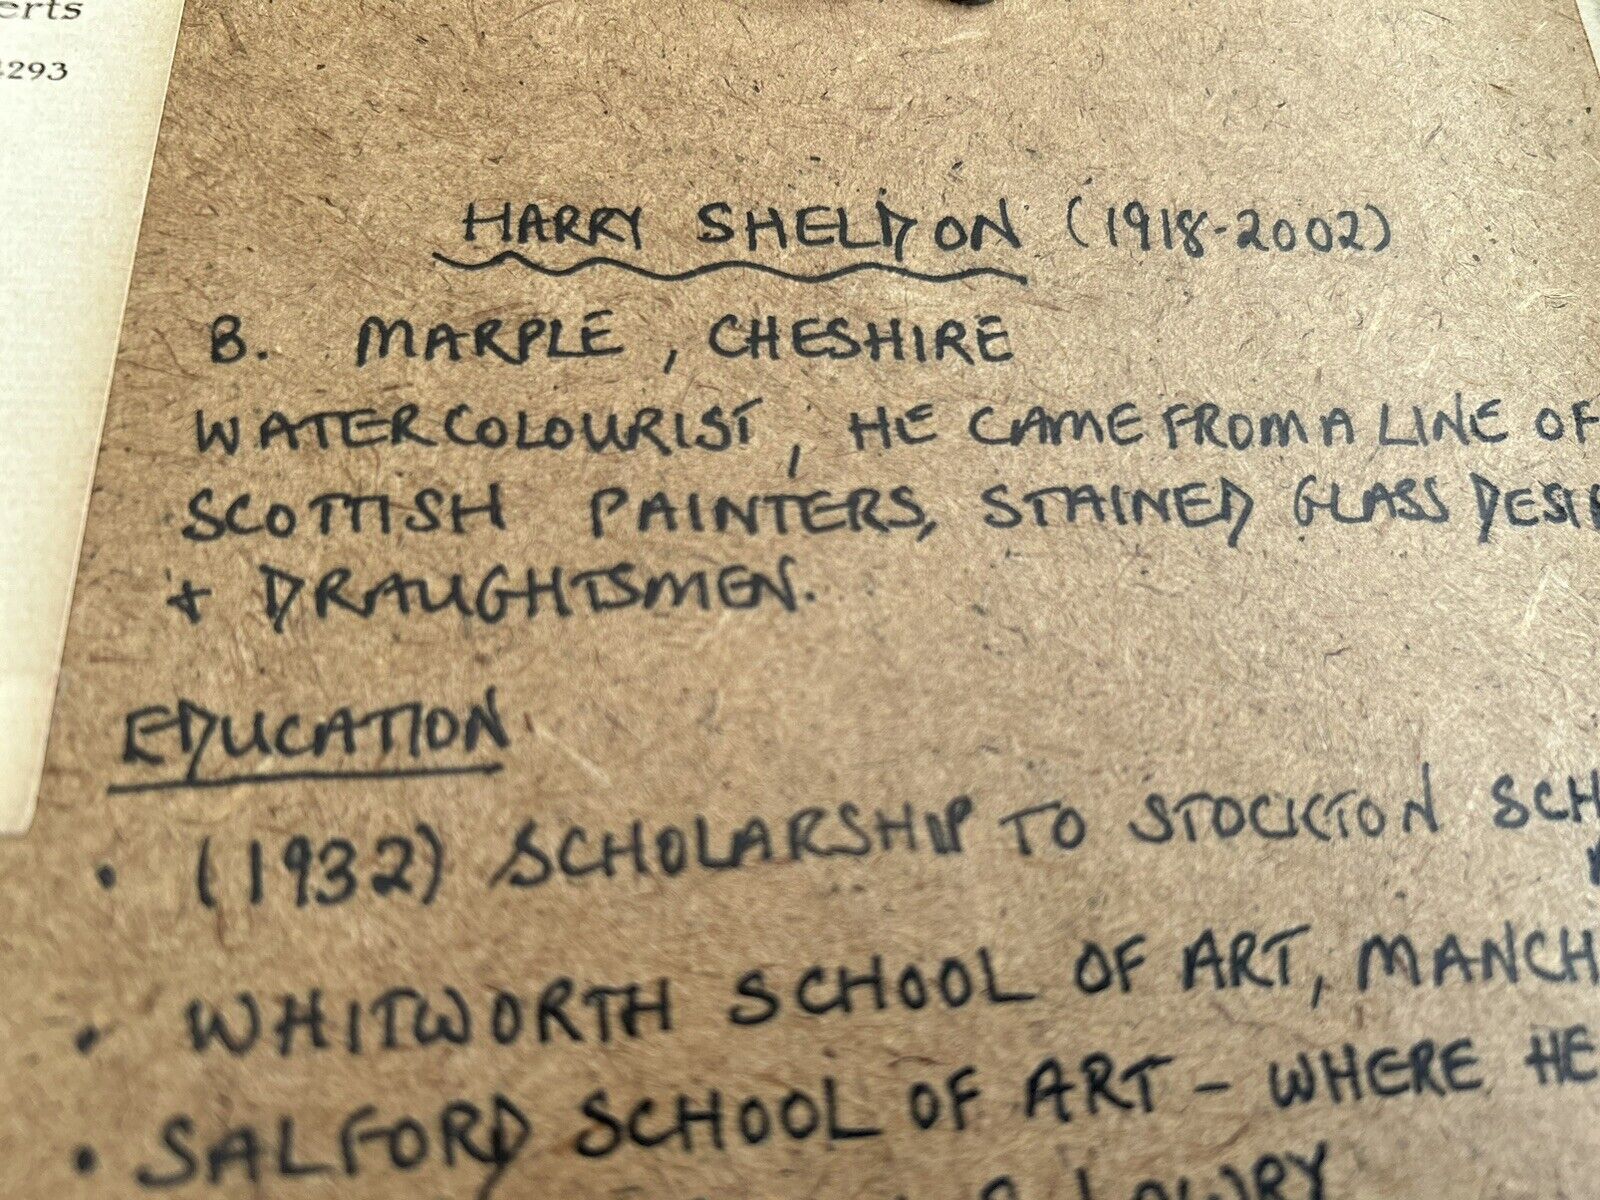 erts
4293
HARRY SHELDON (1918-2002)
B. MARPLE, CHESHIRE
WATERCOLOURIST, HE CAME FROM A LINE OF
SCOTTISH PAINTERS, STAINED GLASS DESI
+ DRAUGHTSMEN.
EDUCATION
• (1932) SCHOLARSHIP TO STOCKTON SCH
• WHITWORTH SCHOOL OF ART, MANCH
• SALFORD SCHOOL OF ART - WHERE HE
LOWRY